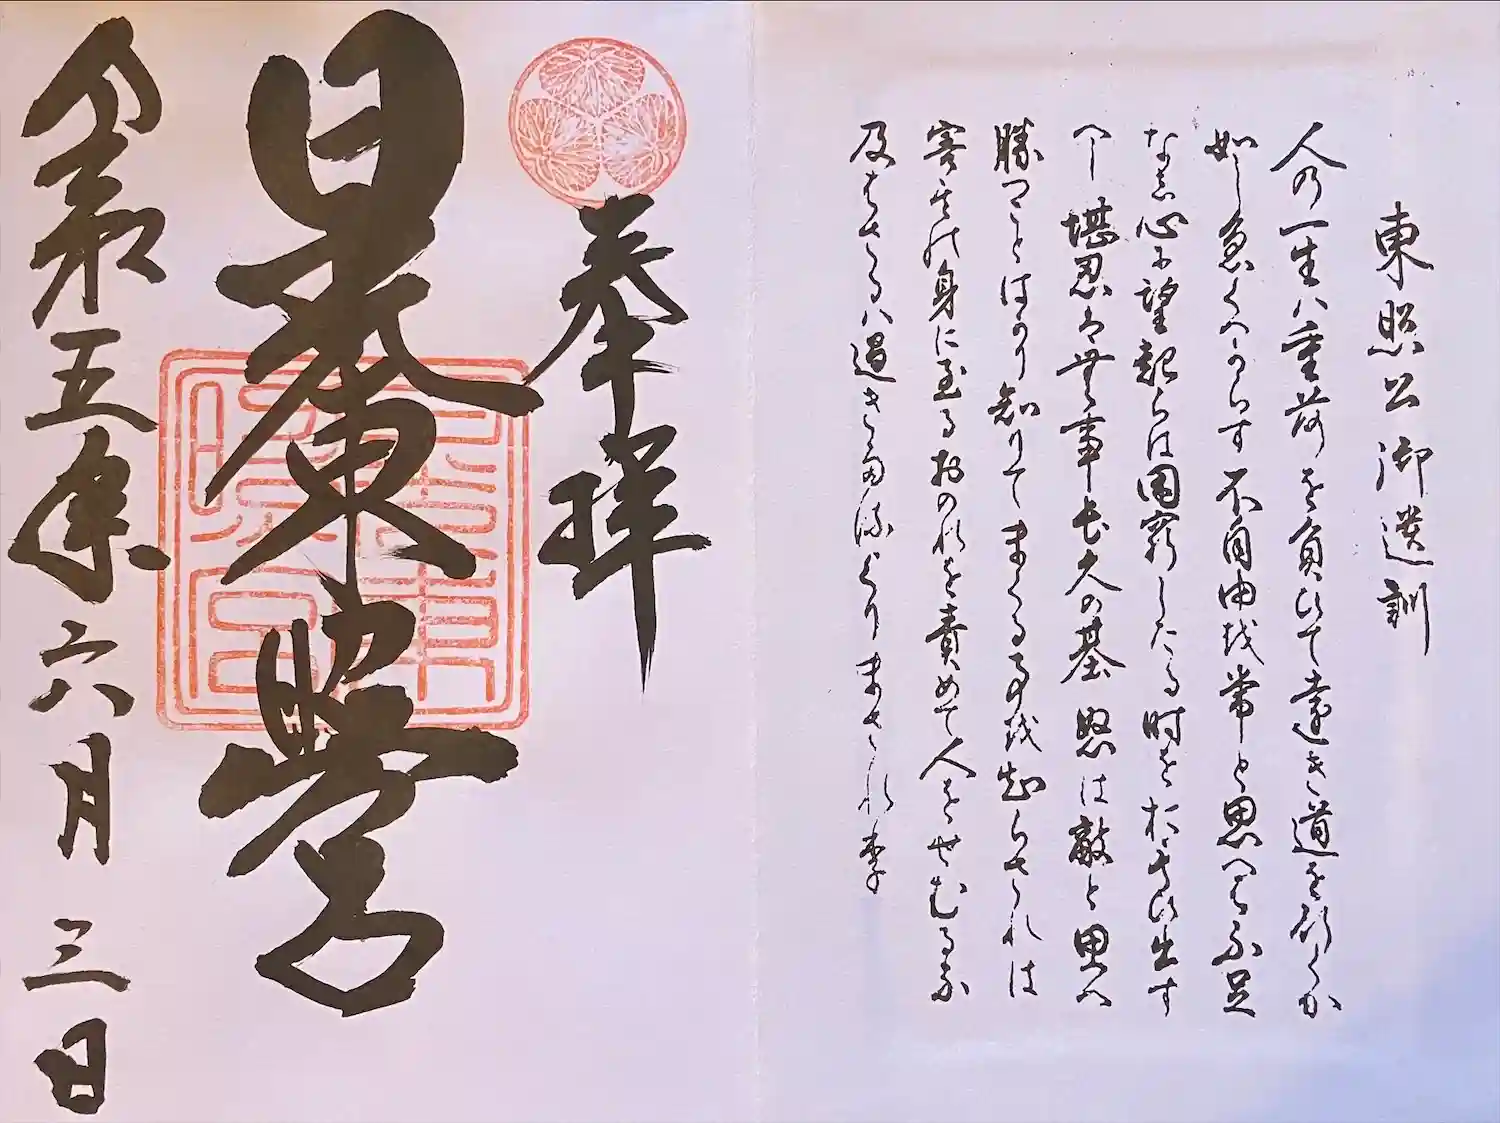 東照公御遺訓
人の一生ハ重荷を負ひて遠き道を行くか
如し急くへからす不自由を常と思へは不足
なし心に望起らは困窮したる時をおもひ出す
へし堪忍は無事長久の基怒は敵と思へ
勝つことはかり知りてまくる事を知らされは
害其の身に至るおのれを責めて人をせむるな
及はさるハ過きたるよりまされり
奉拝
日光東照宮
令和五年六月三日